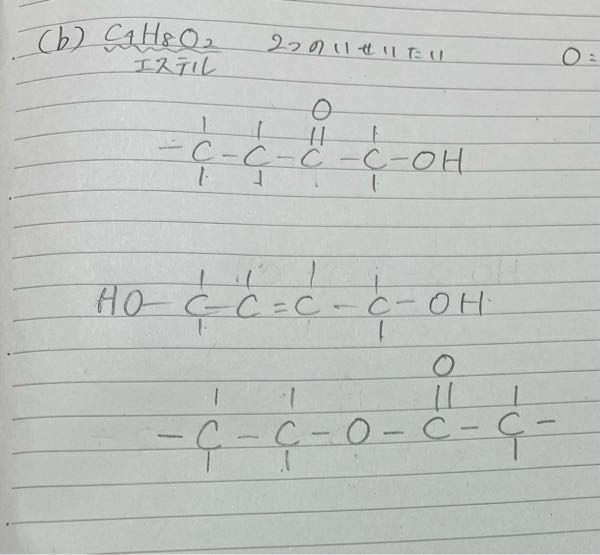 (b) C4H8O2 2つのいせいたい O=
エステル
O
||
-C-C-C-C-OH
HO-C-C=C-C-OH
O
||
-C-C-O-C-C-